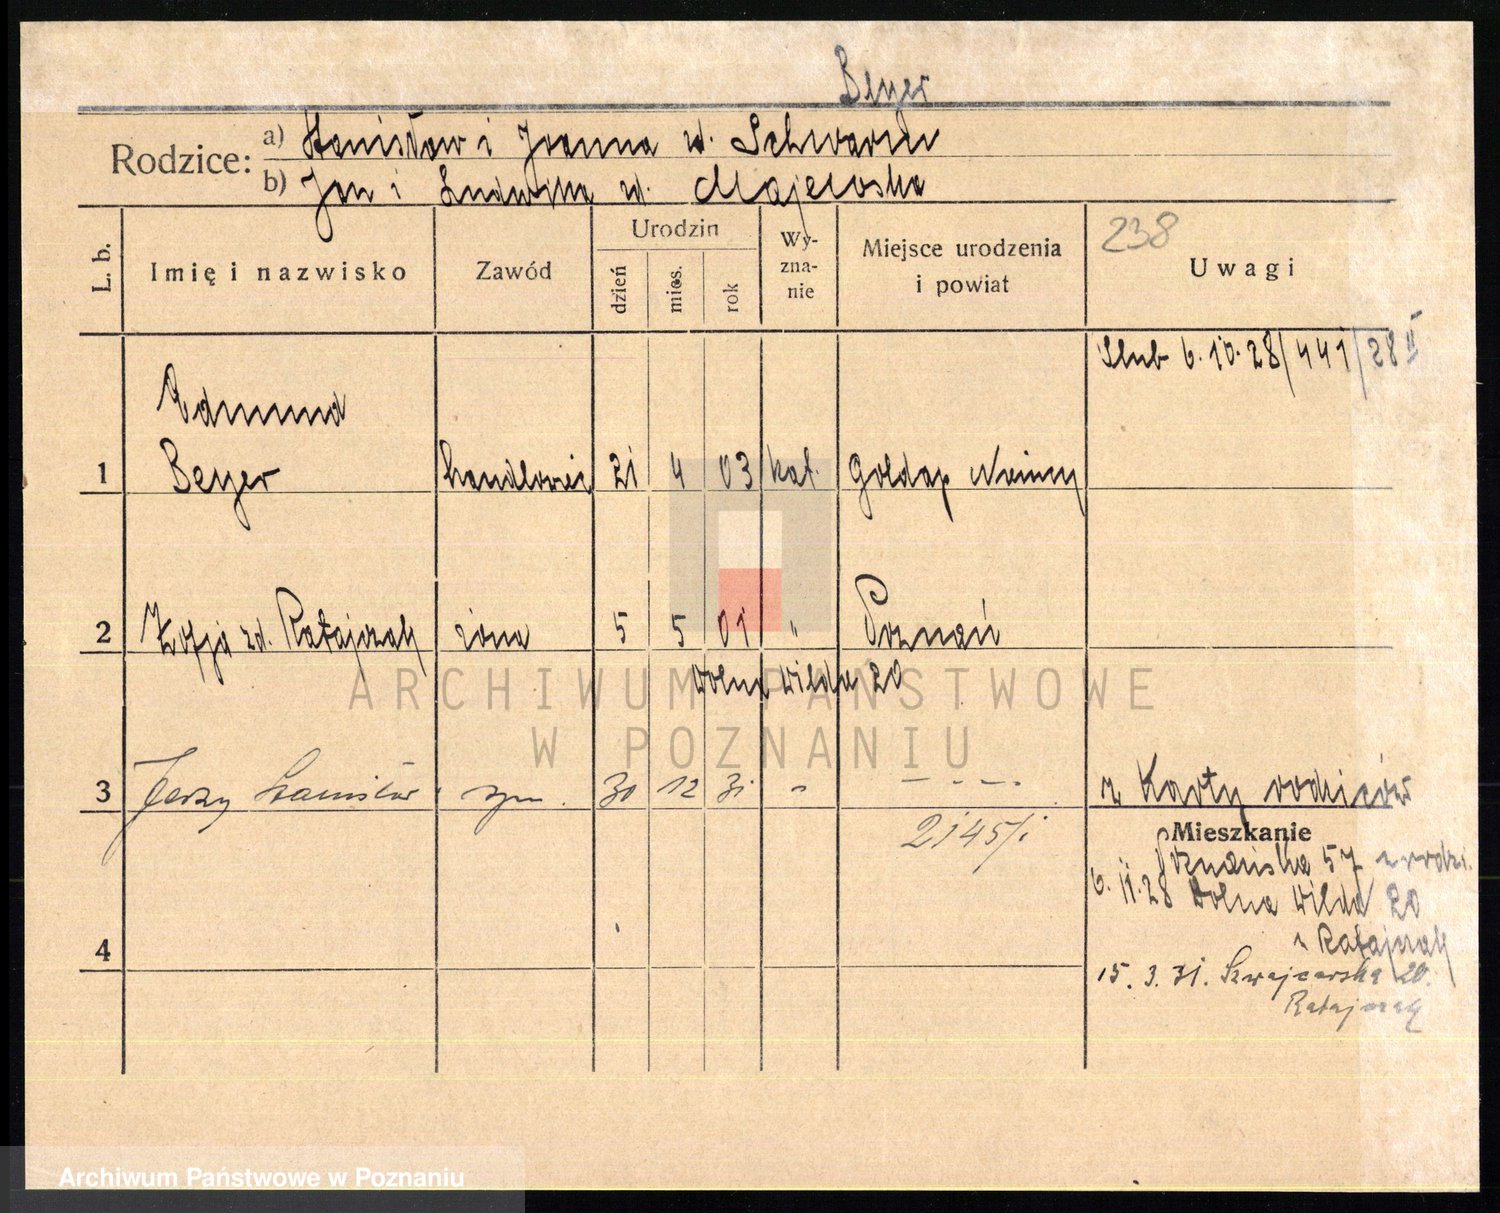 Beyer
Rodzice: a) Stanisław i Joanna zd. Schwardz
b) Jan i Ludwika zd. Majewska
L. b. Imię i nazwisko Zawód Urodzin dzień mies. rok Wyzna-nie Miejsce urodzenia i powiat 238 Uwagi
Ślub 6.10.28/441/28 II
Edmund
1 Beyer handlowiec 21 4 03 kat. Gołdap Niemcy
2 Zofja zd. Ratajczak żona 5 5 01 " Poznań
Dolna Wilda 20
3 Jerzy Stanisław syn. 30 12 31 " – - - - .
z Karty rodziców
2145/1
Mieszkanie
Poznańska 57 u rodz.
6.11.28 Dolna Wilda 20
4 u Ratajczak
15.3.31. Szwajcarska 20.
Ratajczak
ARCHIWUM PAŃSTWOWE
W POZNANIU
Archiwum Państwowe w Poznaniu